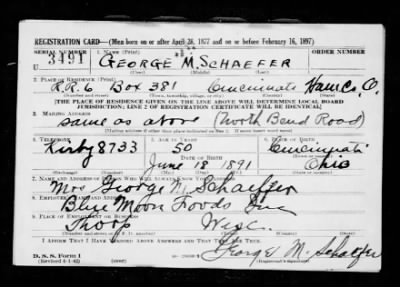 REGISTRATION CARD—(Men born on or after April 28, 1877 and on or before February 16, 1897)
SERIAL NUMBER 1. NAME (Print) ORDER NUMBER
U 3491 GEORGE M. SCHAEFER
(First) (Middle) (Last)
2. PLACE OF RESIDENCE (Print)
R.R. 6 Box 381 Cincinnati Ham. Co. O.
(Number and street) (Town, township, village, or city) (County) (State)
[THE PLACE OF RESIDENCE GIVEN ON THE LINE ABOVE WILL DETERMINE LOCAL BOARD
JURISDICTION; LINE 2 OF REGISTRATION CERTIFICATE WILL BE IDENTICAL]
3. MAILING ADDRESS
same as above (North Bend Road)
4. TELEPHONE 5. AGE IN YEARS 6. PLACE OF BIRTH
Kirby 8733 50 Cincinnati
DATE OF BIRTH
June 18 1891 Ohio
7. NAME AND ADDRESS OF PERSON WHO WILL ALWAYS KNOW YOUR ADDRESS
Mrs George M. Schaefer
8. EMPLOYER'S NAME AND ADDRESS
Blue Moon Foods Inc
9. PLACE OF EMPLOYMENT OR BUSINESS
Thorp Wisc.
I AFFIRM THAT I HAVE VERIFIED ABOVE ANSWERS AND THAT THEY ARE TRUE.
D. S. S. Form 1
(Revised 4-1-42) George M. Schaefer